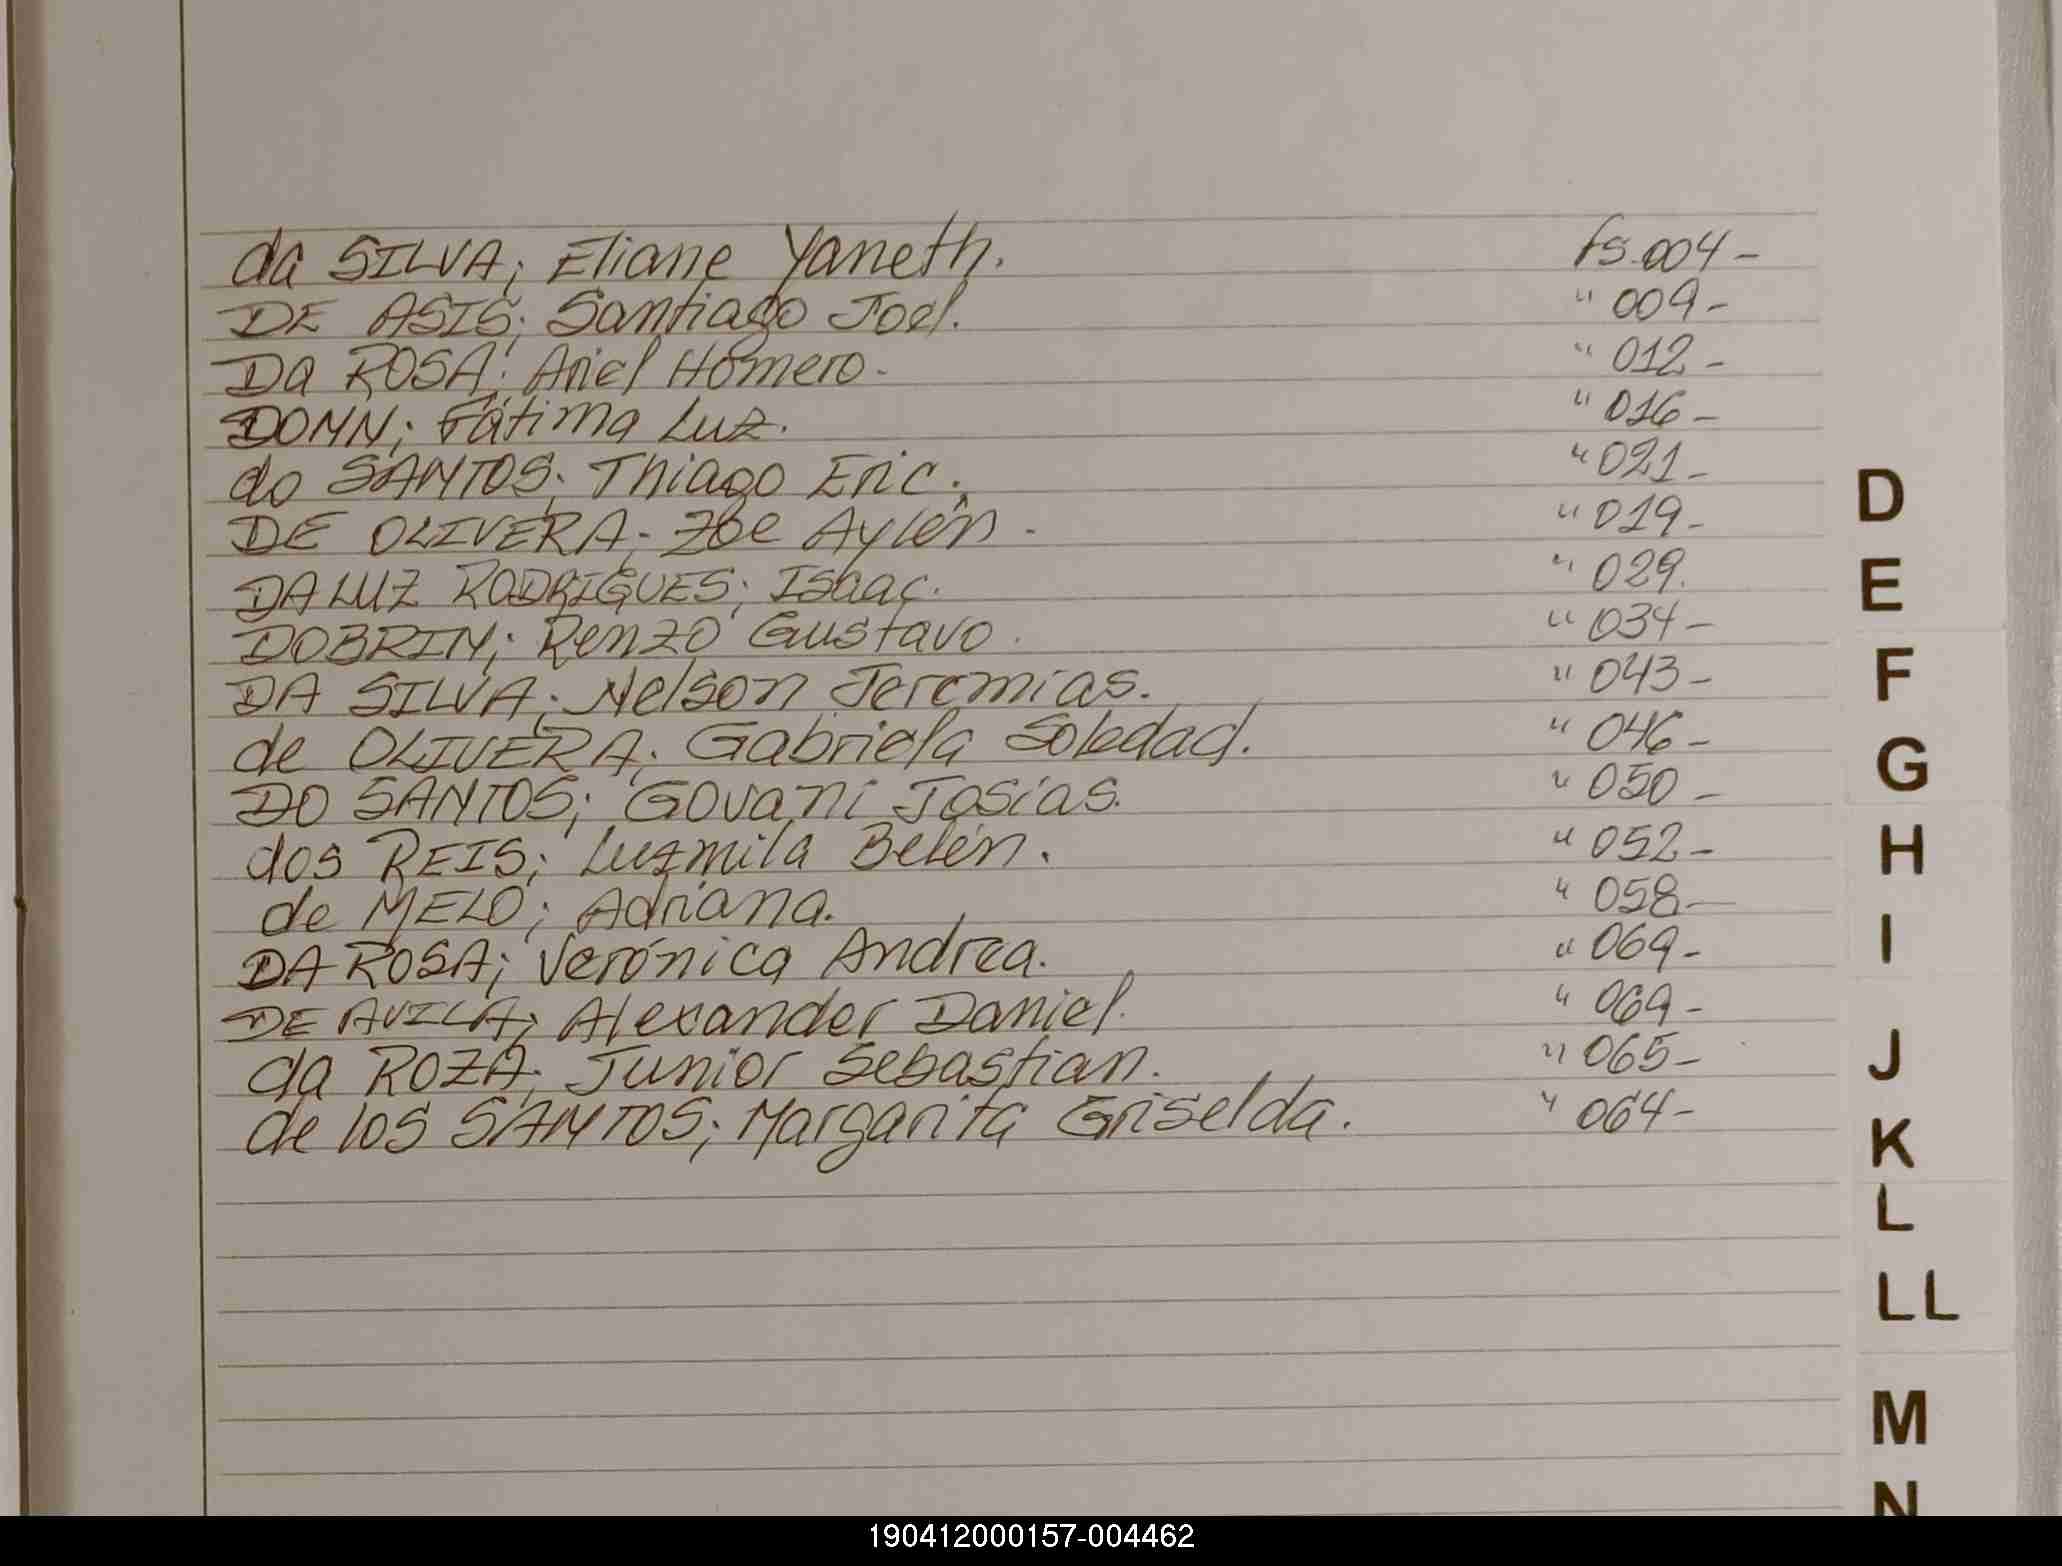 da SILVA; Eliane Yaneth. fs. 004-
DE ASIS; Santiago Joel. " 009-
Da ROSA; Ariel Homero- " 012-
DOHN; Fátima Luz. " 016-
do SANTOS; Thiago Eric. " 021-
DE OLIVERA; Zoe Aylén - " 019-
DA LUZ RODRIGUES; Isaac. " 029.
DOBRIN; Renzo Gustavo. " 034-
DA SILVA; Nelson Jeremías. " 043-
de OLIVERA; Gabriela Soledad. " 046-
DO SANTOS; Govani Josías. " 050-
dos REIS; Luzmila Belén. " 052-
de MELO; Adriana. " 058-
DA ROSA; Verónica Andrea. " 069-
DE AVILA; Alexander Daniel. " 069-
da ROZA; Junior Sebastian. " 065-
de los SANTOS; Margarita Griselda. " 064-
D
E
F
G
H
I
J
K
L
LL
M
N
190412000157-004462